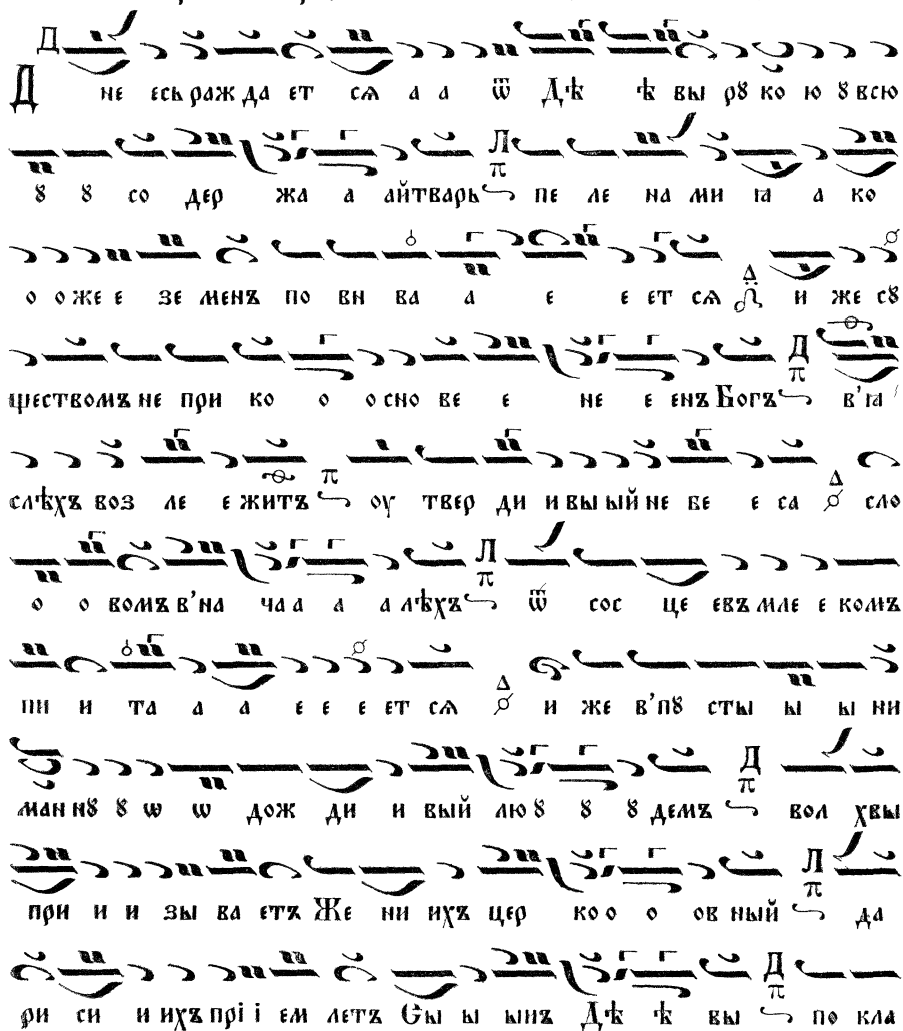 Д не есь раж да ет сѧ а а ѿ Дѣ ѣ вы рꙋ ко ю ꙋ всю
ꙋ ꙋ со дер жа а айтварь пе ле на ми ꙗ а ко
о о же е зе менъ по ви ва а е е ет сѧ и же сꙋ
ществомъ не при ко о о сно ве е не е енъ Богъ в'ꙗ
слѣхъ воз ле е житъ оу твер ди и вы ый не бе е са сло
о о вомъ в'на ча а а а а лѣхъ ѿ сос це евъ мле е комъ
пи и та а а е е е ет сѧ и же в'пꙋ сты ы ы ни
ман нꙋ ꙋ ѡ ѡ дож ди и вый лю ꙋ ꙋ ꙋ демъ вол хвы
при и и зы ва етъ Же ни ихъ цер ко о о ов ный да
ри си и ихъ прі і ем летъ Сы ы ынъ Дѣ ѣ вы по кла